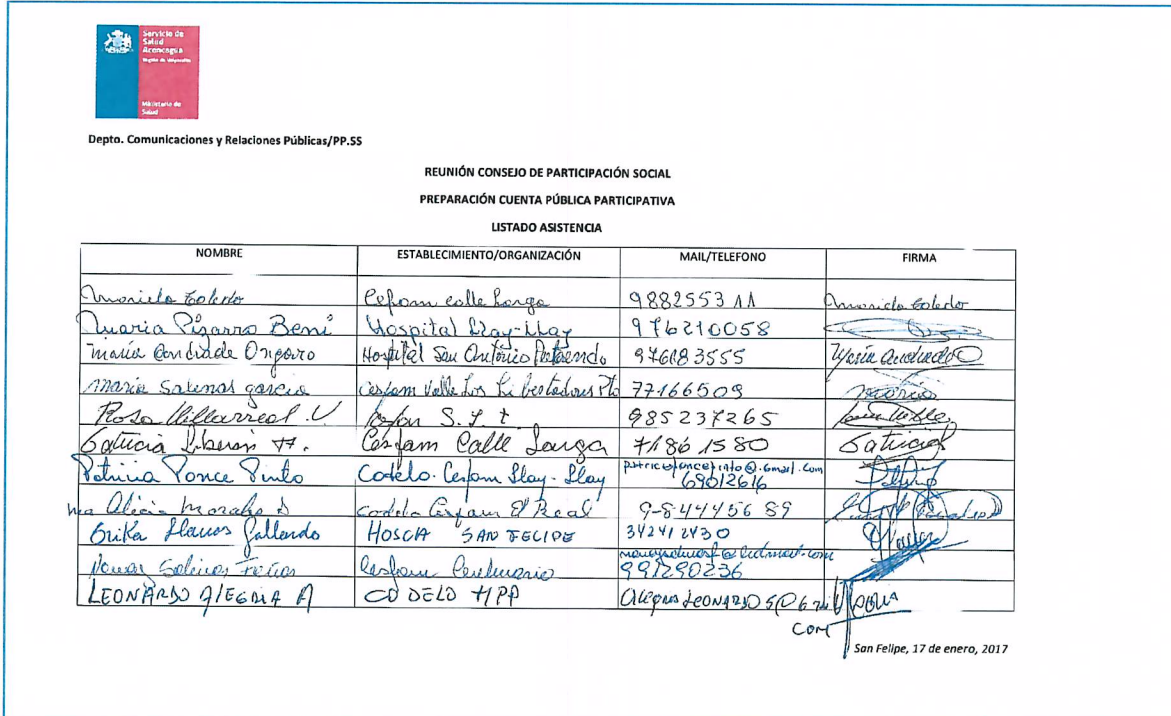 Servicio de
Salud
Aconcagua
Región de Valparaíso
Ministerio de
Salud
Depto. Comunicaciones y Relaciones Públicas/PP.SS
REUNIÓN CONSEJO DE PARTICIPACIÓN SOCIAL
PREPARACIÓN CUENTA PÚBLICA PARTICIPATIVA
LISTADO ASISTENCIA
NOMBRE ESTABLECIMIENTO/ORGANIZACIÓN MAIL/TELEFONO FIRMA
Toledo Cesfam calle Larga 988255311 Toledo
Maria Pizarro Hospital Llay-Llay 976210058
María Hospital San Antonio Putaendo 976183555 María
Maria Salinas garcia Cesfam Valle Los Libertadores 77166509
Rosa Villarreal. V S.
985237265
Patricia Cesfam Calle Larga 71861580 Patricia
Patricia Ponce Pinto Codelo. Cesfam Llay-Llay patriciaponcepinto@.Gmail.com
69012616
Ma Alicia Morales Codelo Cesfam El Real 9-84445689
Erika Llanos Gallardo HOSCA SAN FELIPE 342412430
Salinas Cesfam Centenario 991290236
LEONARDO ALEGRIA A CODELO HPP
COM
San Felipe, 17 de enero, 2017